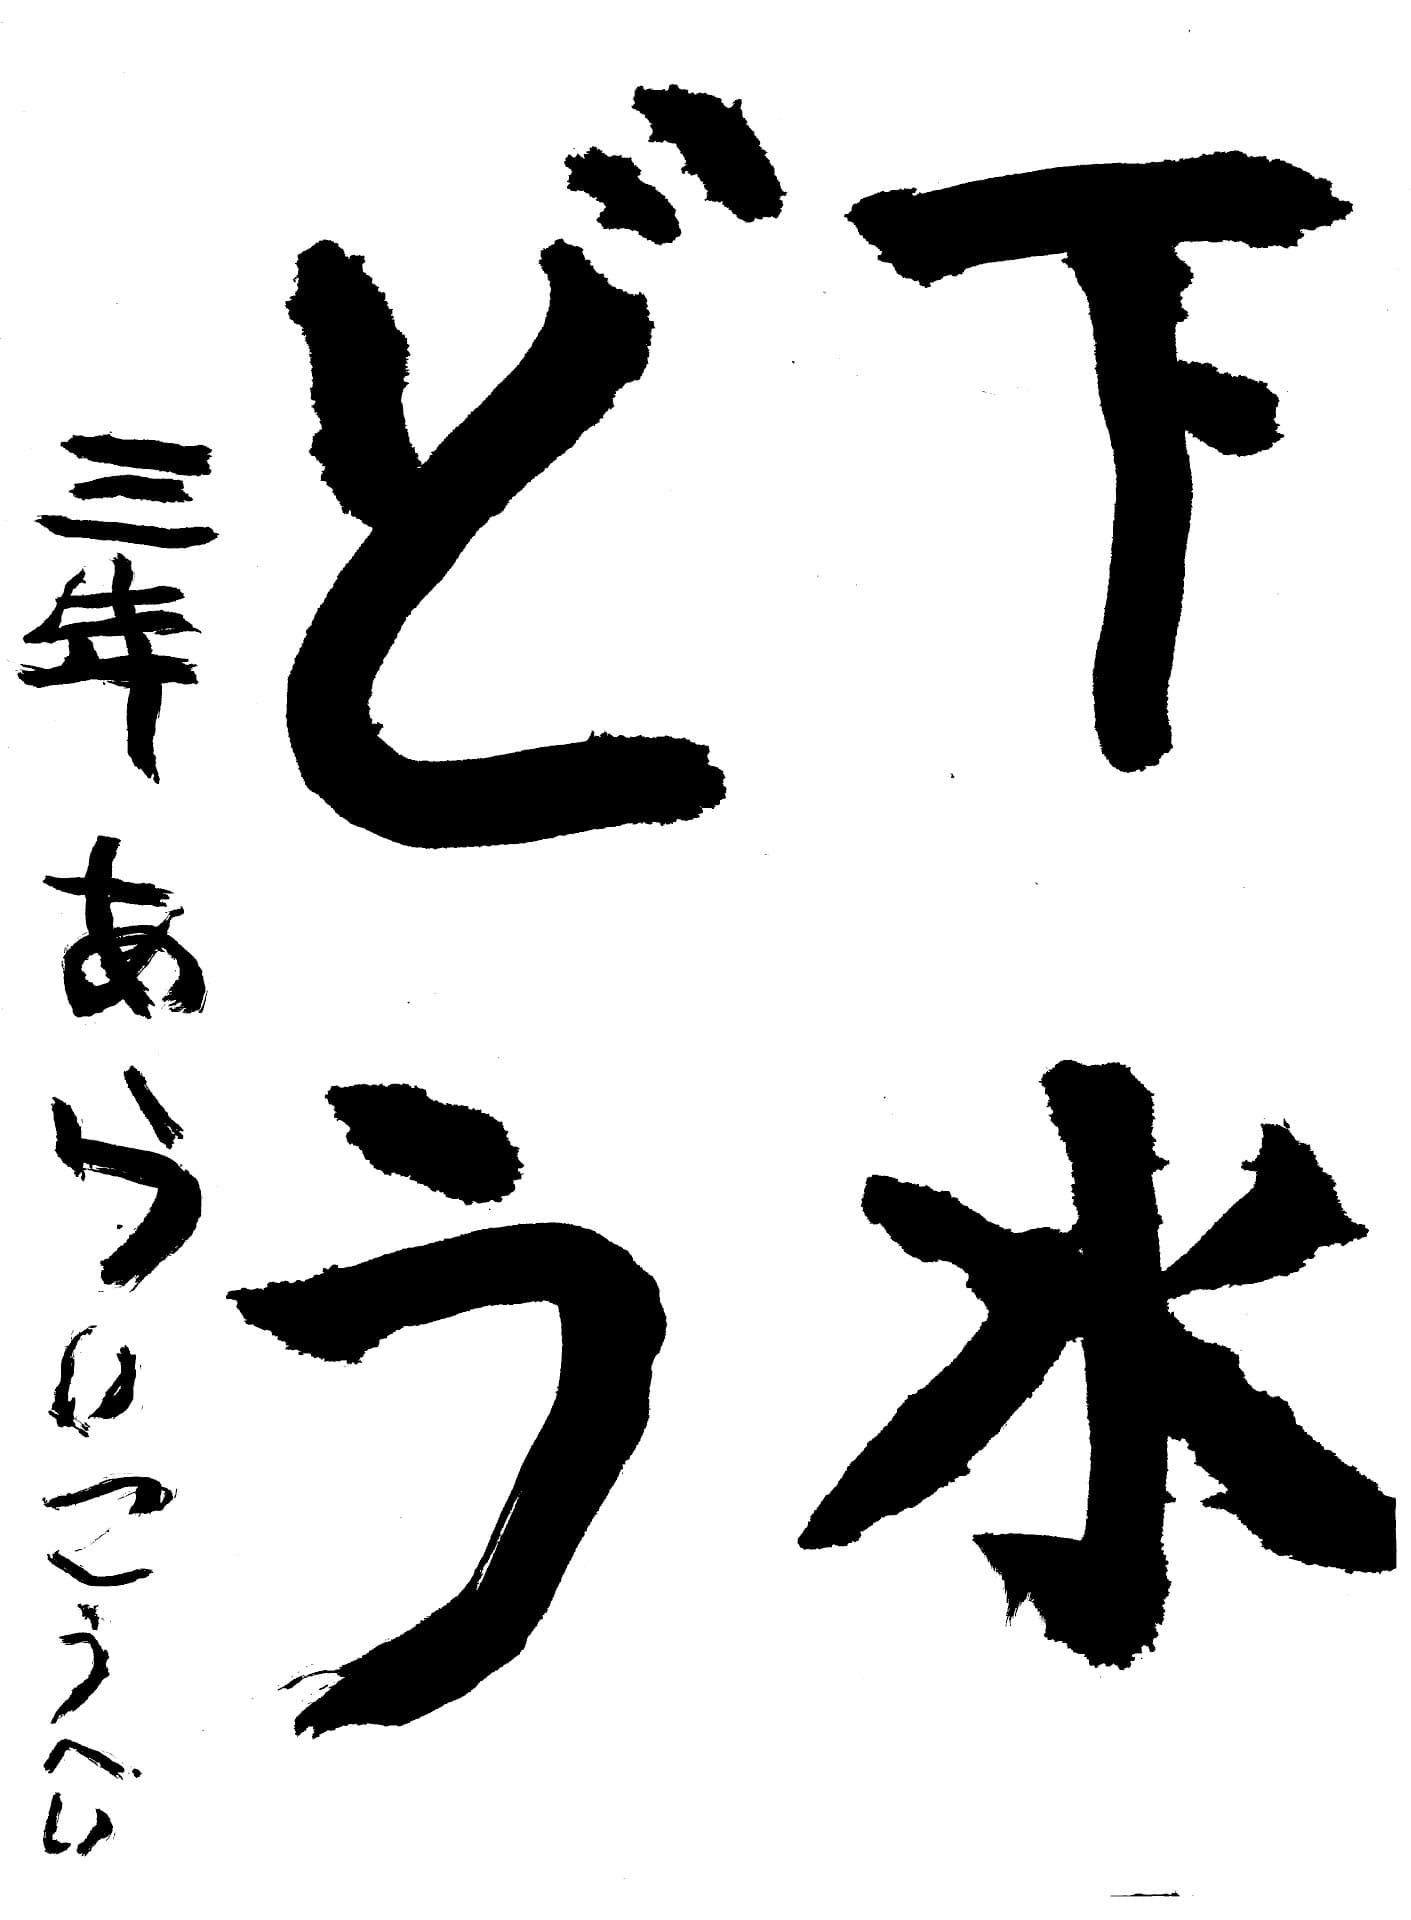 下水
どう
三年 あらい こうへい